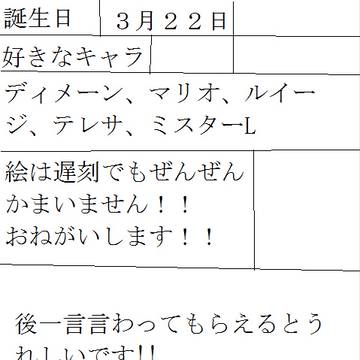 誕生日 3月22日
好きなキャラ
ディメーン、マリオ、ルイー
ジ、テレサ、ミスターL
絵は遅刻でもぜんぜん
かまいません！！
おねがいします！！
後一言言わってもらえるとう
れしいです!!